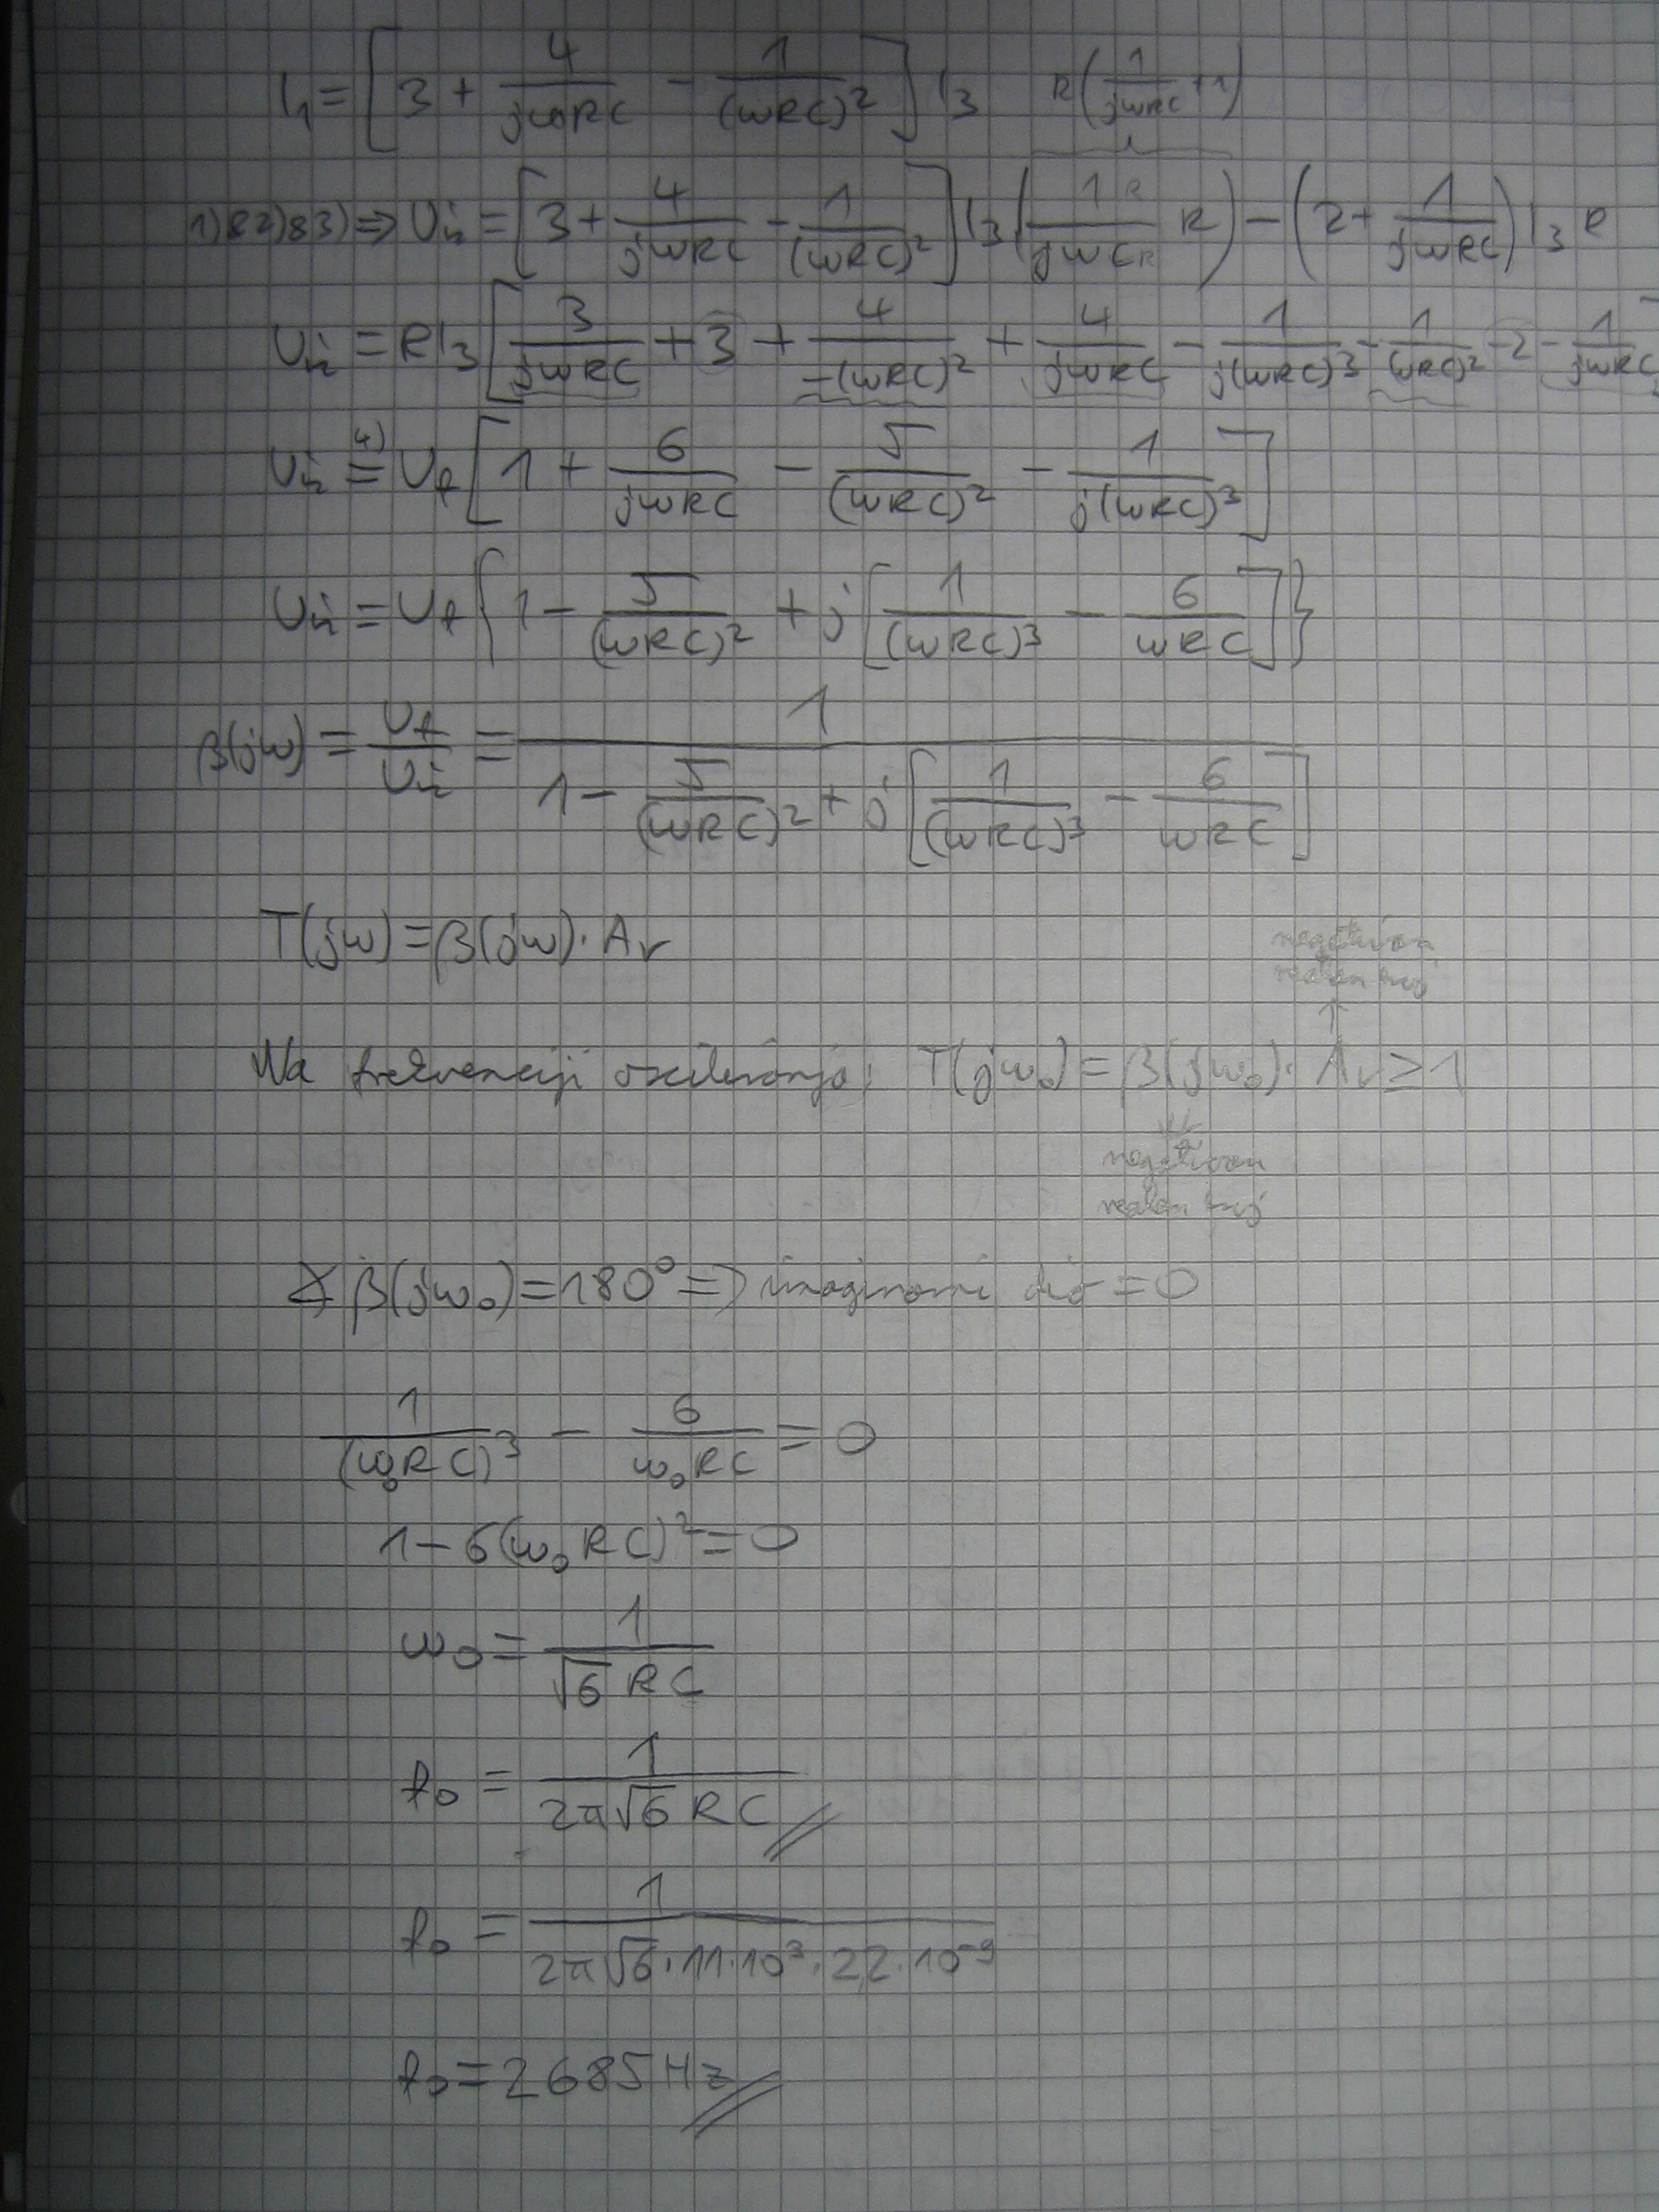 I₁ = [3 + 4/(jωRC) − 1/(ωRC)²] I₃   R(1/(jωRC) + 1)
1)&2)&3) ⇒ Uᵢₙ = [3 + 4/(jωRC) − 1/(ωRC)²] I₃ (1 R/(jωC R) R) − (2 + 1/(jωRC)) I₃ R
Uᵢₙ = R I₃ [3/(jωRC) + 3 + 4/(−(ωRC)²) + 4/(jωRC) − 1/(j(ωRC)³) − 1/(ωRC)² − 2 − 1/(jωRC)
Uᵢₙ =⁴⁾ U_f [1 + 6/(jωRC) − 5/(ωRC)² − 1/(j(ωRC)³)]
Uᵢₙ = U_f {1 − 5/(ωRC)² + j[1/(ωRC)³ − 6/(ωRC)]}
β(jω) = U_f/Uᵢₙ = 1/(1 − 5/(ωRC)² + j[1/(ωRC)³ − 6/(ωRC)])
T(jω) = β(jω) · A_V
negativan
realan broj
↑
Na frekvenciji osciliranja: T(jω₀) = β(jω₀) · A_V ≥ 1
negativan
realan broj
∡ β(jω₀) = 180° ⇒ imaginarni dio = 0
1/(ω₀RC)³ − 6/(ω₀RC) = 0
1 − 6(ω₀RC)² = 0
ω₀ = 1/(√6 RC)
f₀ = 1/(2π√6 RC)
f₀ = 1/(2π√6 · 11 · 10³ · 2,2 · 10⁻⁹)
f₀ = 2685 Hz